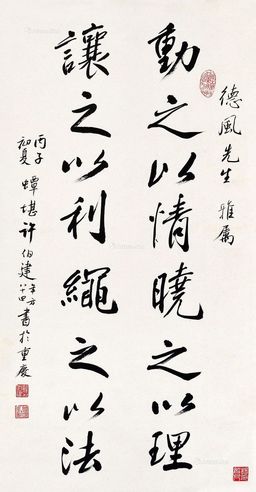 德風先生雅屬
動之以情曉之以理
讓之以利繩之以法
丙子
初夏蟫堪许伯建年方八四書於重慶